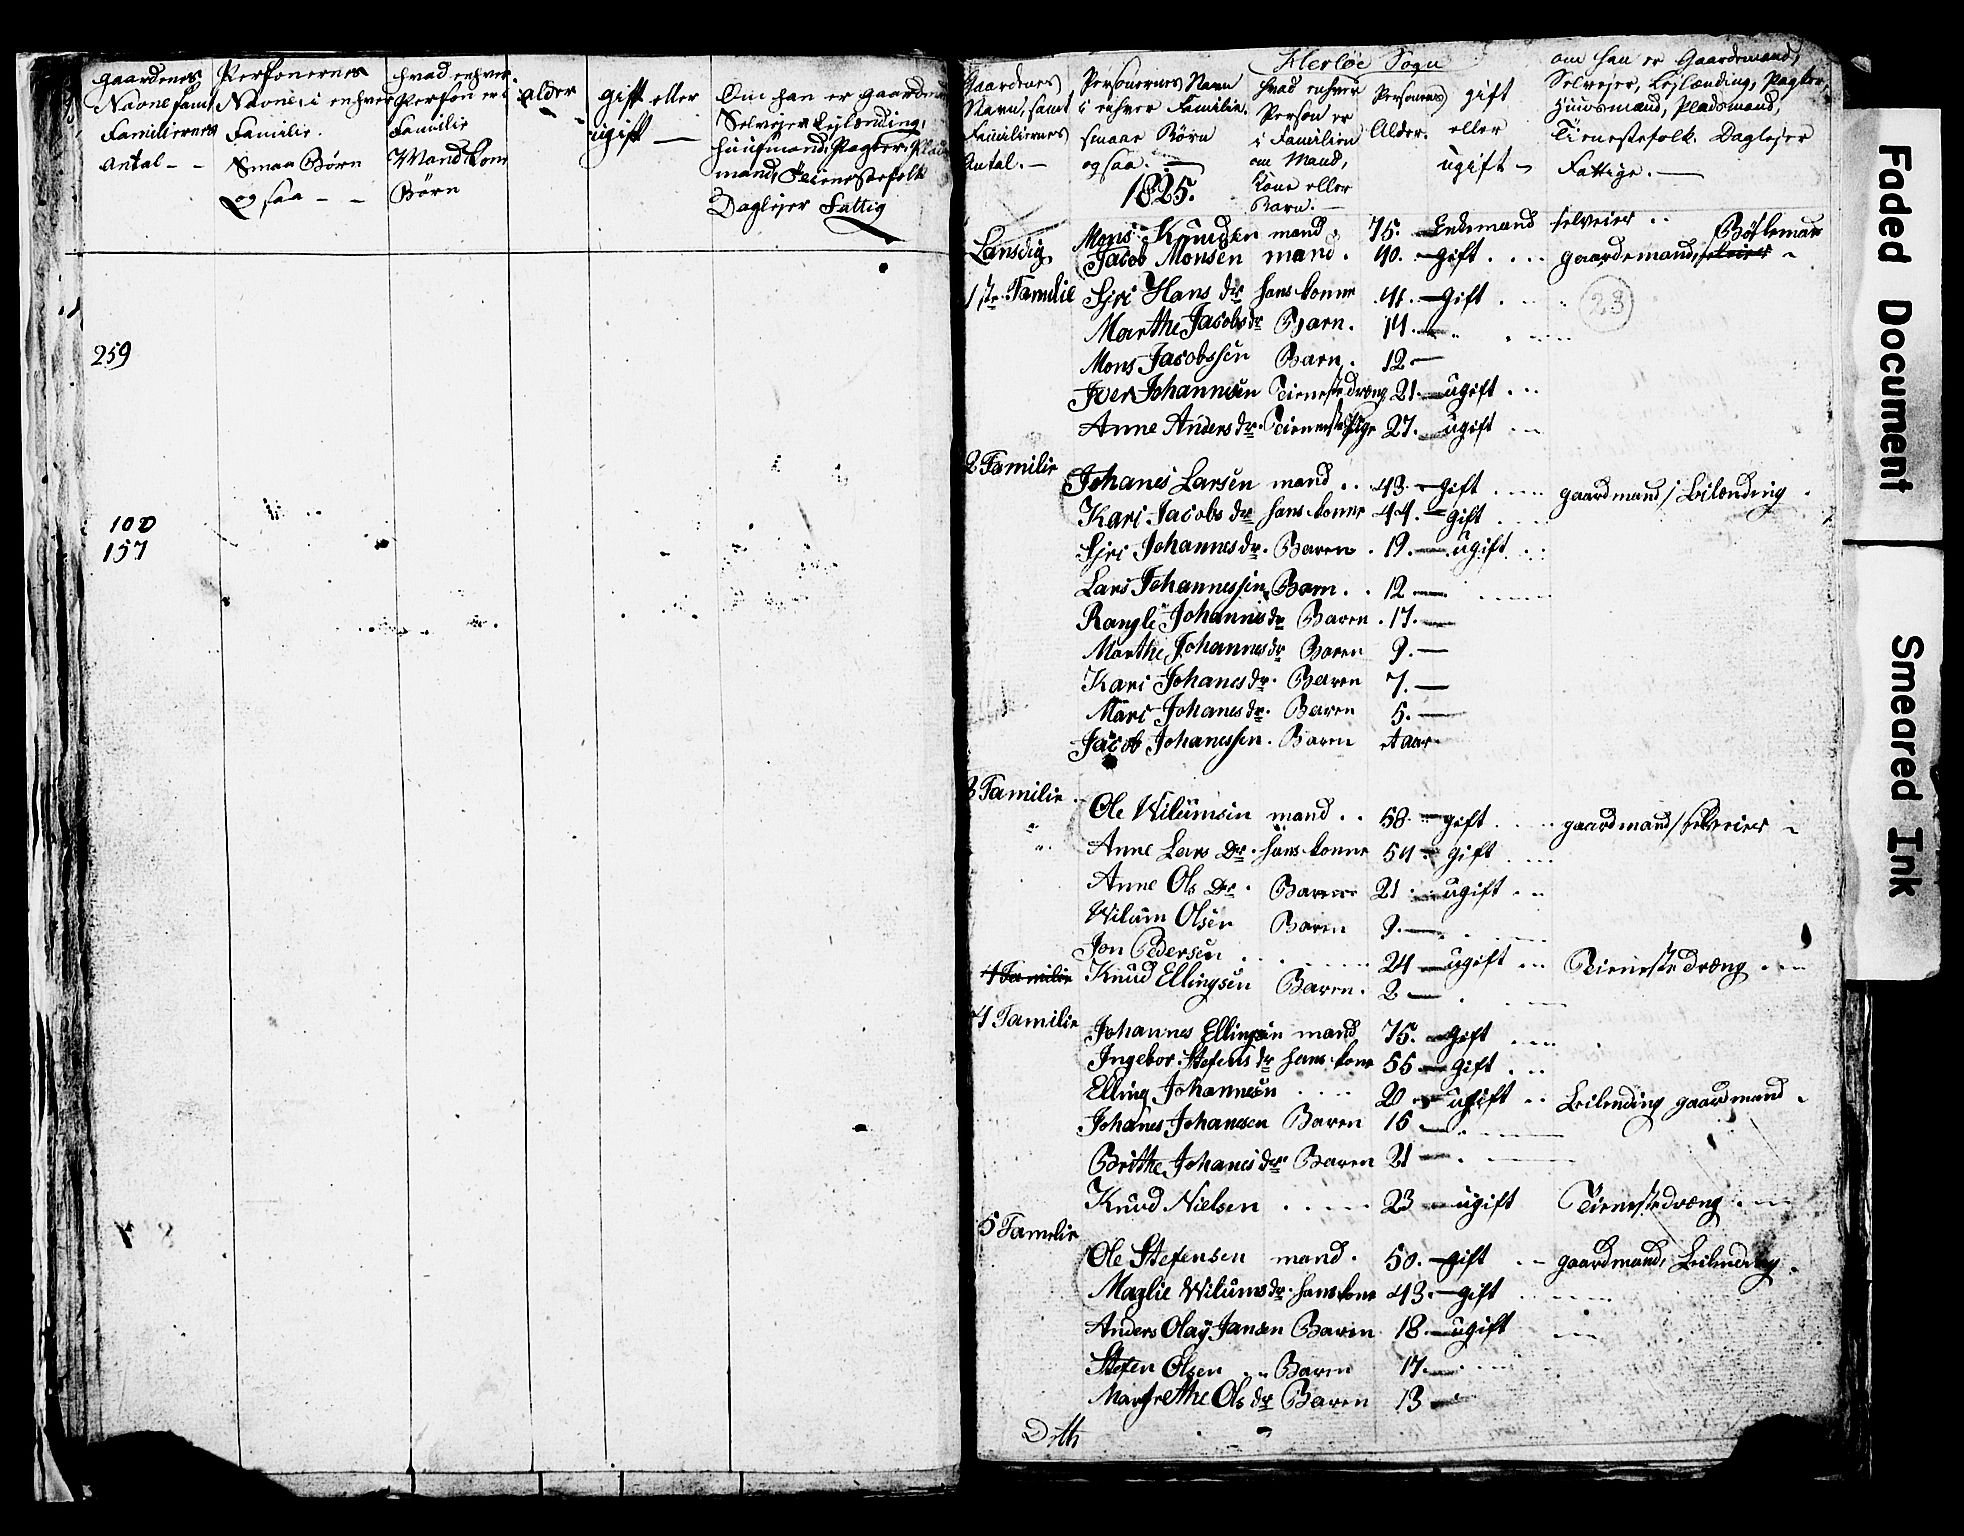 gaardenes
Navne samt
Familiernes
antal - -
Personernes
Navne i enhver
Familie.
Smaa Børn
og saa - -
hvad enhver
Person er i
Familie
Mand Kon
Børn
alder
gift eller
ugift —
Om han er gaardm
Selveier Lejlænding,
huusmand, Pagter, Plads
mand, Tienestefolk
Daglejer Fattig
259
100
157
Herløe Sogn
Gaardenes
Navn, samt
Familiernes
Antal. —
Personernes Navn
i enhver Familie.
smaae Børn
og saa. —
1825.
hvad enhver
Person er
i Familien
om Mand,
Kone eller
Barn. —
Personernes
Alder.
gift
eller
ugift -
om han er Gaardemand,
Selvejer, Lejlænding, Pagter,
Huusmand, Pladsmand,
Tienestefolk. Daglejer
Fattige. —
Mons Knudsen mand. 75. Enkemand selveier ..
Landsvig Jacob Monsen mand. 40. gift .... gaardemand, selveier
1ste Familie Sjri Hans dr hans konne 41. gift . 23
Marthe Jacobs dr Barn. 14.
Mons Jacobssen Barn. 12 —
Iver Johannesen Tieneste dreng 21. — ugift ...
Anne Anders dr. Tieneste Pige 27. ugift ..
2 Familie
Johanes Larsen mand .. 43. gift .... gaardmand / Leilending
Kari Jacobs dr hans konne 44. gift
Sjri Johannes dr. Baren . 19. — ugift
Lars Johannessen Barn .. 12 —
Rangle Johannes dr Baren . 17. —
Marthe Johannes dr Baren 9. —
Kari Johanes dr. Baren 7. —
Mari Johanes dr. Baren 5. —
Jacob Johanessen. Baren et aar
3 Familie
Ole Wilumsen mand .. 58. gift .... gaardmand / selveier
Anne Lars Dr. hans konne 54. gift
Anne Ols Dr. Baren 21 . ugift ..
Wilum Olsen Baren 9. —
Jon Pedersen ... 24 — ugift ... Tieneste dreng
4 Familie Knud Ellingsen Baren. 2 —
4 Familie
Johannes Ellingsen mand 75. gift
Ingebor Stefens dr hans kone 55 — gift ...
Elling Johannesen .... 20 ugift .. Leilending gaardmand
Johanes Johanesen Baren 16 —
Brithe Johanes dr Baren 21 —
Knud Nielsen .... 23 ugift Tieneste dreng
5 Familie
Ole Stefensen mand. 50. gift .. gaardmand, Leilending
Maglie Wilums dr. hans kone 43. gift
Anders Olay Jansen Baren 18. ugift
Stefen Olsen .. Baren 17.
Margrethe Ols dr Baren 13